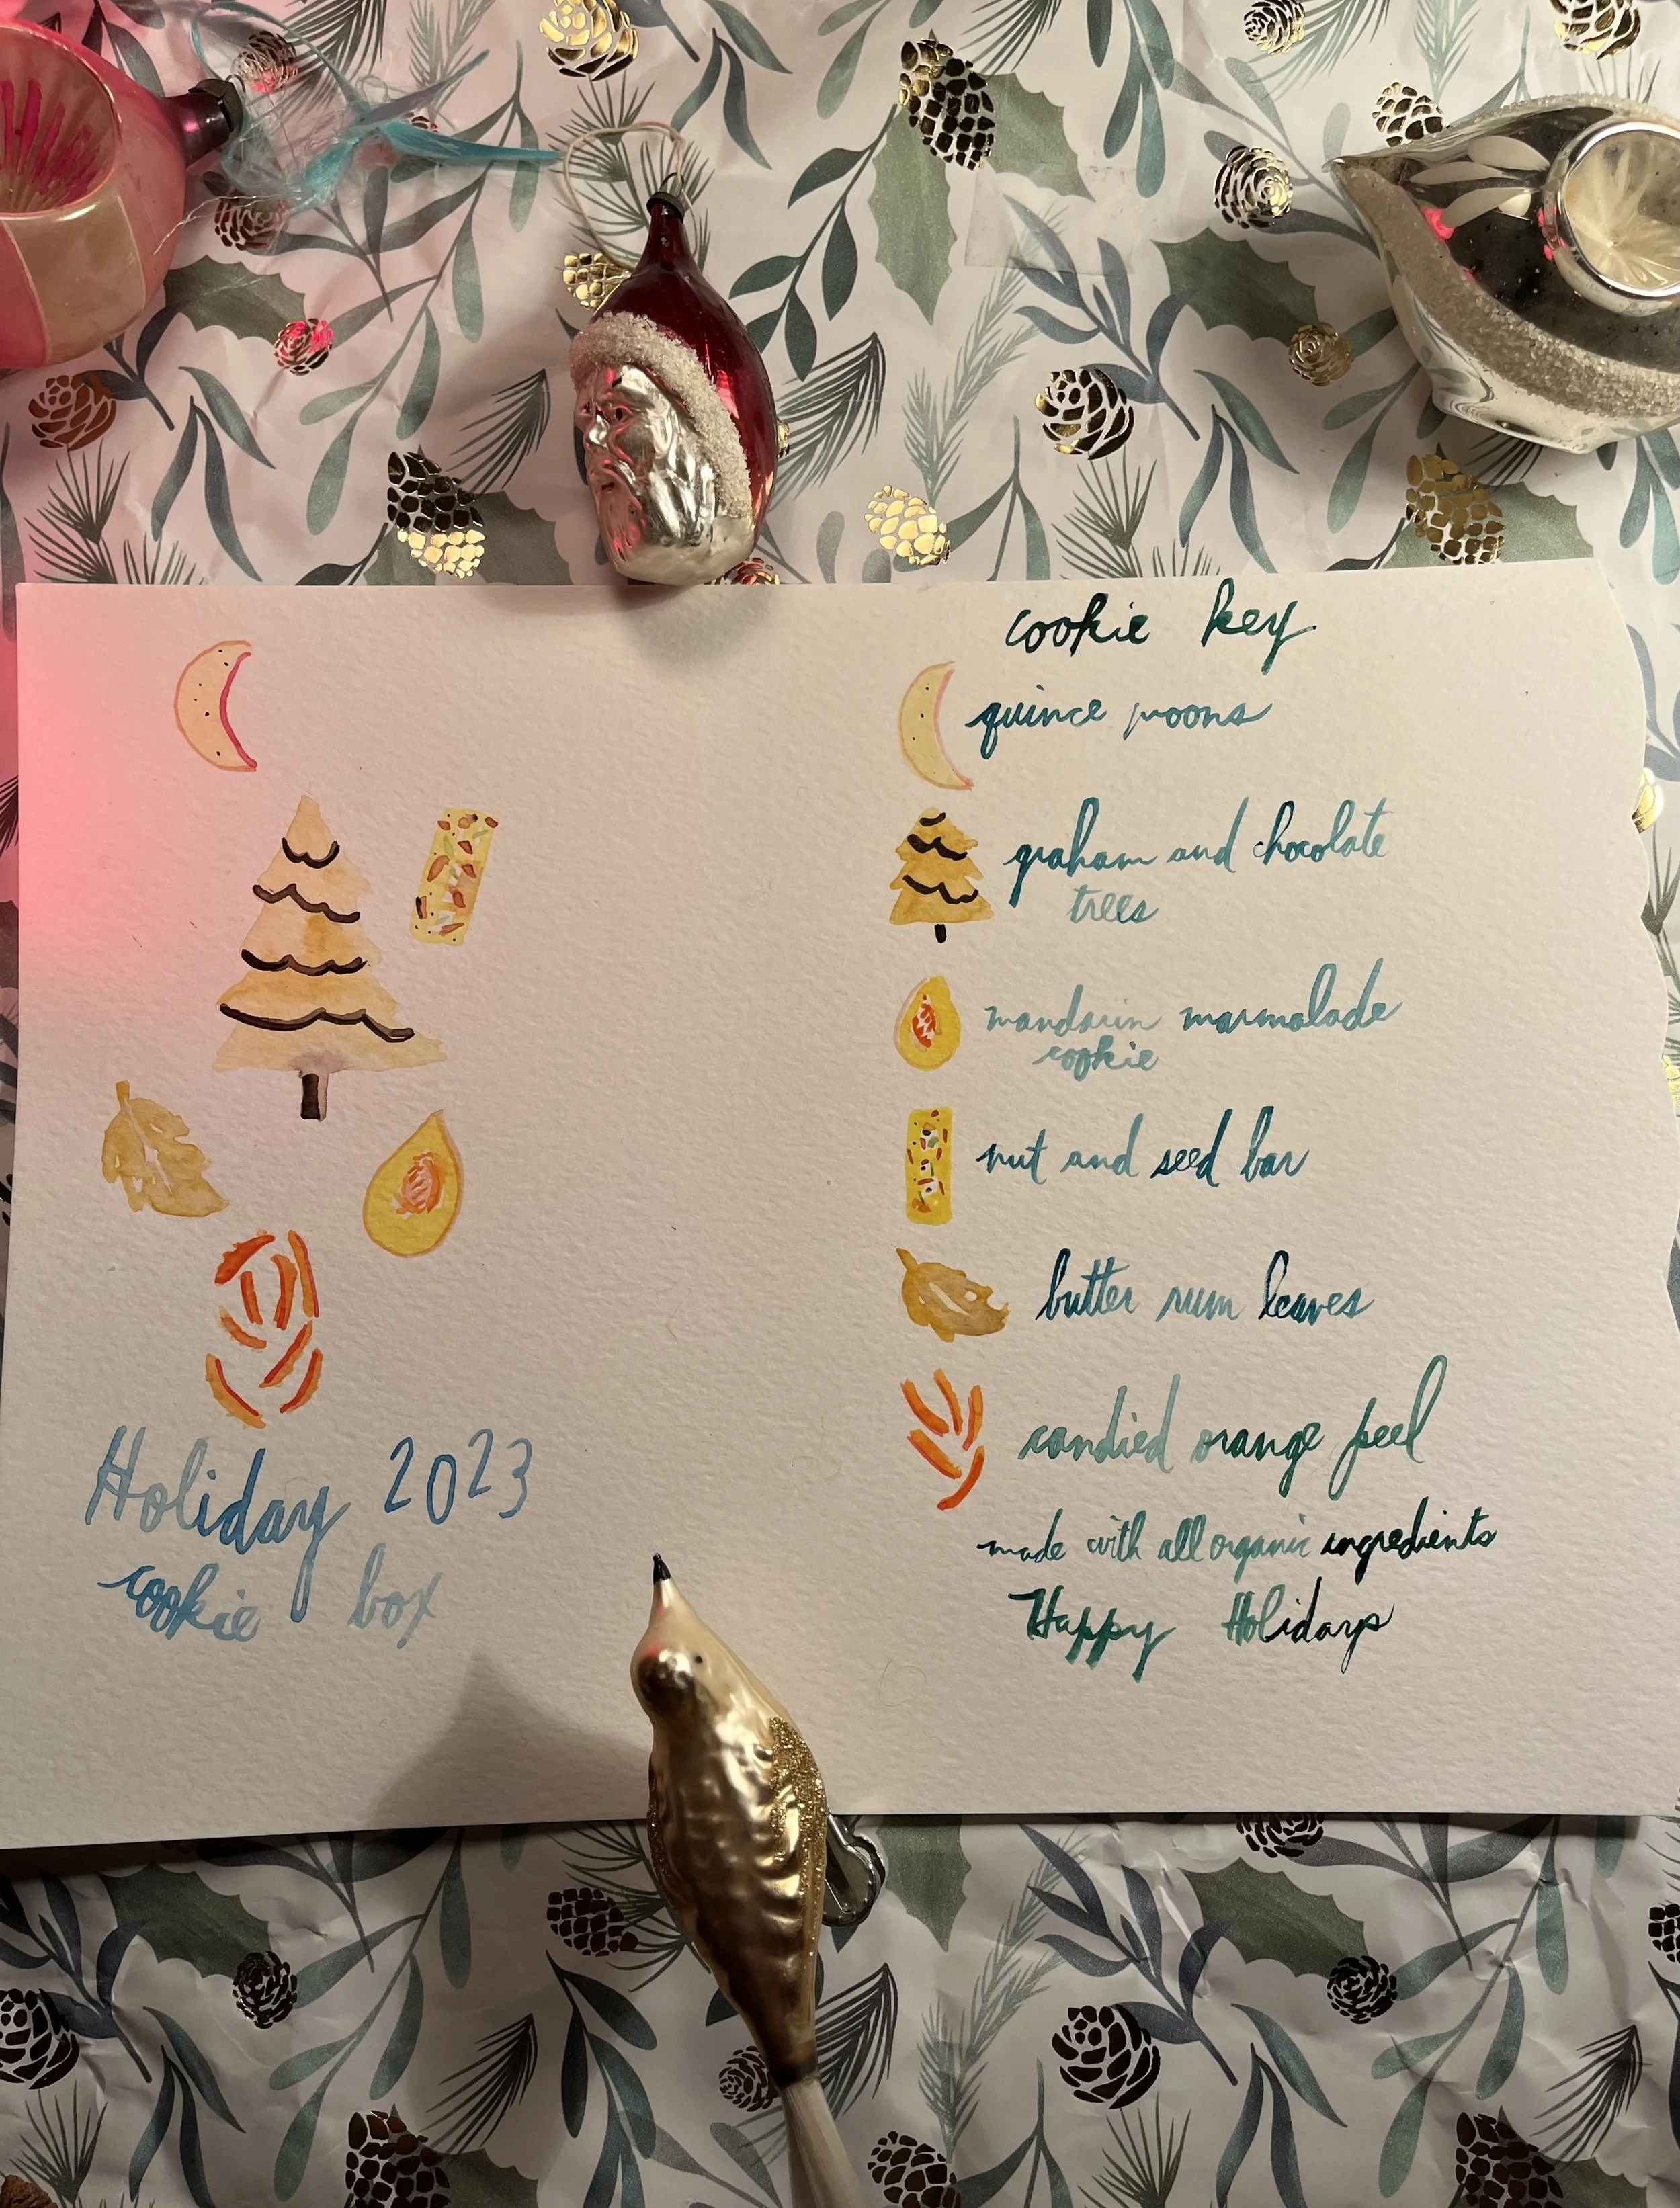 Holiday 2023
cookie box
cookie key
quince moons
graham and chocolate
trees
mandarin marmalade
cookie
nut and seed bar
butter rum leaves
candied orange peel
made with all organic ingredients
Happy Holidays